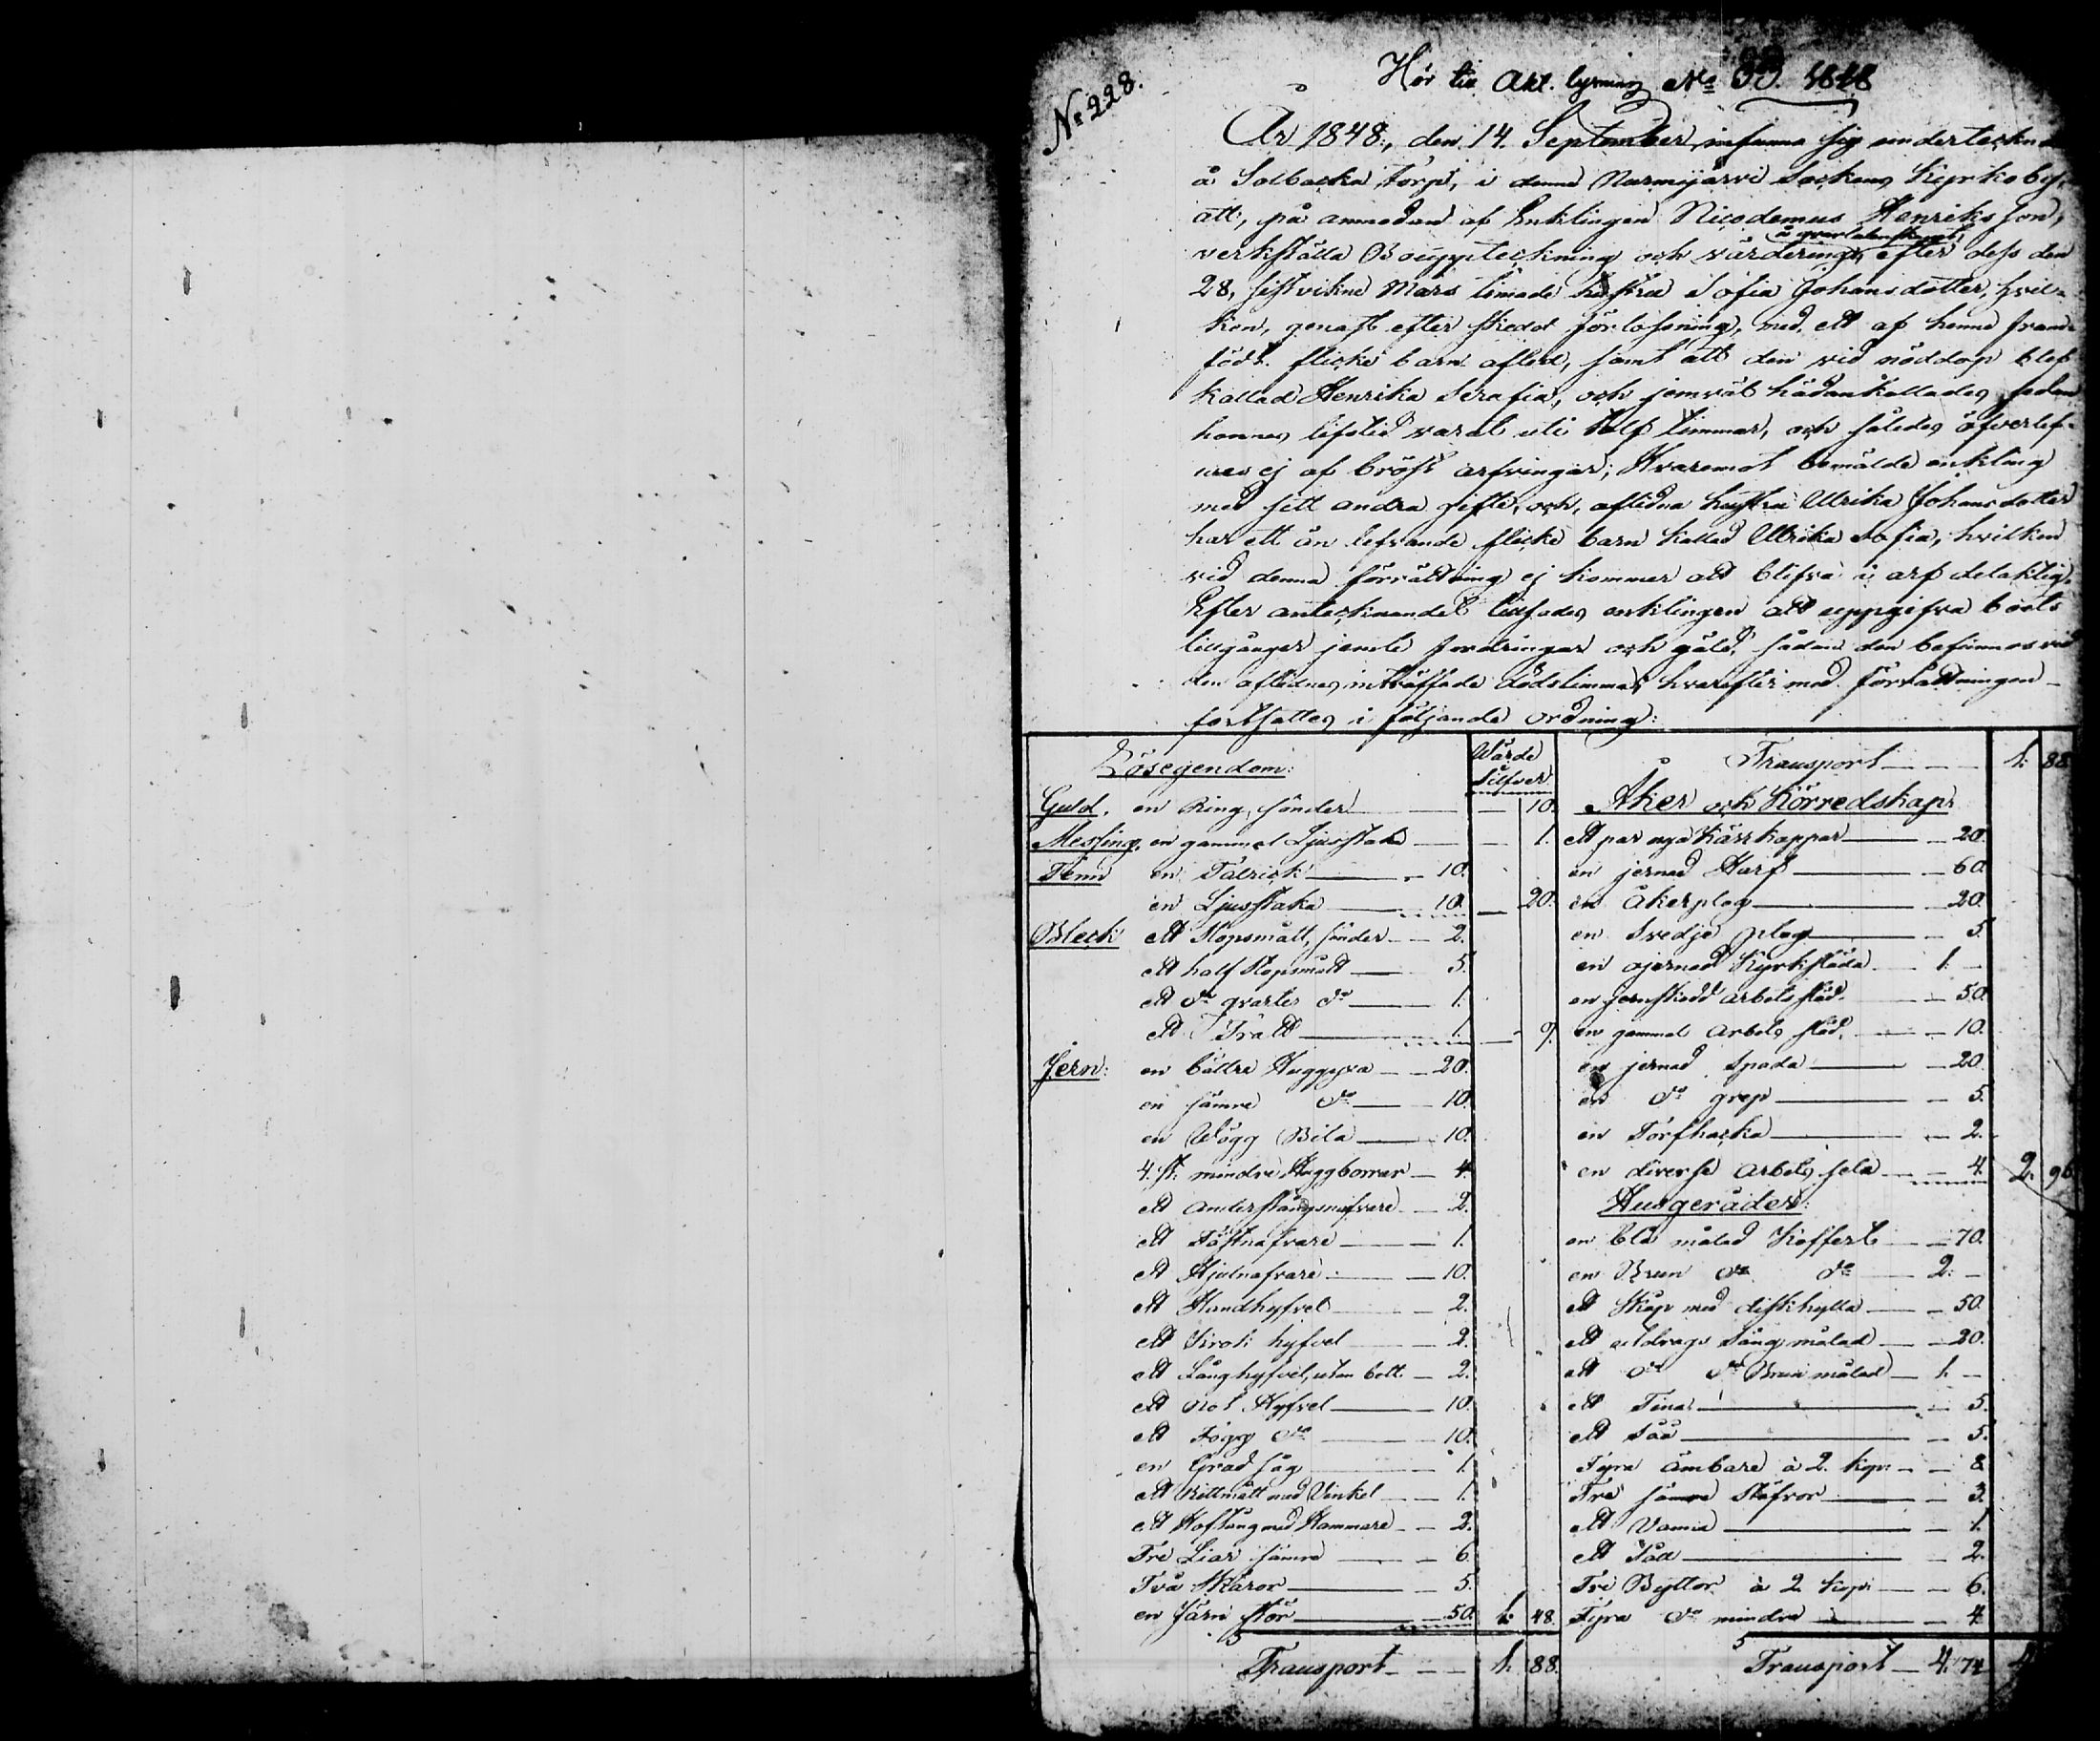 Nº 228.
Hör till Akt. Nº 33. 1848
År 1848, den 14. September infunno sig undertecknade
å Solbacka torp, i denna Nurmijärvi Sockens Kyrkoby,
att, på anmodan af Enklingen Nicodemus Henriksson,
å qvarlatenskapen
verkställa Bouppteckning och värdering, efter dess den
28, sistvikne Mars timade hustru Sofia Johansdotter, hvil-
ken, genast efter skedd förlossning, med ett af henne fram-
födt flicke barn afled, samt att den vid nöddop blef
kallad Henrika Serafia, och jemväl hädankallades, sedan
hennes lifstid varat uti tolf timmar, och således öfverlef-
ej af bröst arfvingar; Hvaremot bemälde enkling
med sitt andra gifte, och aflidna hustru Ulrika Johansdotter
har ett än lefvande flicke barn kallad Ulrika Sofia, hvilken
vid denna förrättning ej kommer att blifva i arf delaktig.
Efter antecknandet tillsades enklingen att uppgifva boets
tillgångar jemte fordringar och gäld, sådan den befinnes vid
den aflidnes inträffade dödstimma, hvarefter med förrättningen
fortsattes i följande ordning:
Lösegendom: Wärde Silfver
Guld. en Ring, sönder — 10.
Messing. en gammal Ljusstake — 1.
Tenn en Talrick — 10.
en Ljusstaka — 10. — 20.
Bleck ett Stopsmått, sönder — 2.
ett half Stopsmått — 5.
ett dº qvarter dº — 1.
ett Tratt — 1. — 9.
Jern: en bättre Huggyxa — 20.
en sämre dº — 10.
en Wägg Bila — 10.
4. st. mindre Huggborrar — 4.
ett — 2.
ett — 1.
ett Hjulnafvare — 10.
ett Handhyfvel — 2.
ett hyfvel — 2.
ett Långhyfvel, utan bett — 2.
ett Not Hyfvel — 10.
ett Fogg dº — 10.
en Grad såg — 1.
ett med Vinkel — 1.
ett Hoftång med Hammare — 2.
Tre Liar sämre — 6.
Två Skäror — 5.
en Järn stör — 50. 1: 48.
Transport — 1. 88.
Transport — 1: 88
Åker och Körredskap:
ett par nya Kärrkappar — 20.
en jernad Harf — 60.
en Åkerplog — 20.
en Svedje plog — 5.
en ojernad Kyrksläda — 1: —
en jernskodd arbetssläd. — 50.
en gammal Arbets släd. — 10.
en jernad Spada — 20.
en dº grep — 5.
en Torfhacka — 2.
en diverse Arbets sela — 4. 2. 96
Husgeråder:
en blå målad Koffert — 70.
en Brun dº dº — 2: —
ett Skåp med diskhylla — 50.
ett utdrags Säng målad — 20.
ett dº dº Brun målad — 1. —
ett Tina — 5.
ett Såå — 5.
Fyra ämbare à 2. kop: — 8.
Tre sämre Stäfvor — 3.
ett Vanna — 1.
ett Såll — 2.
Tre Byttor à 2 kop: — 6.
Fyra dº mindre — 4.
Transport — 4. 74